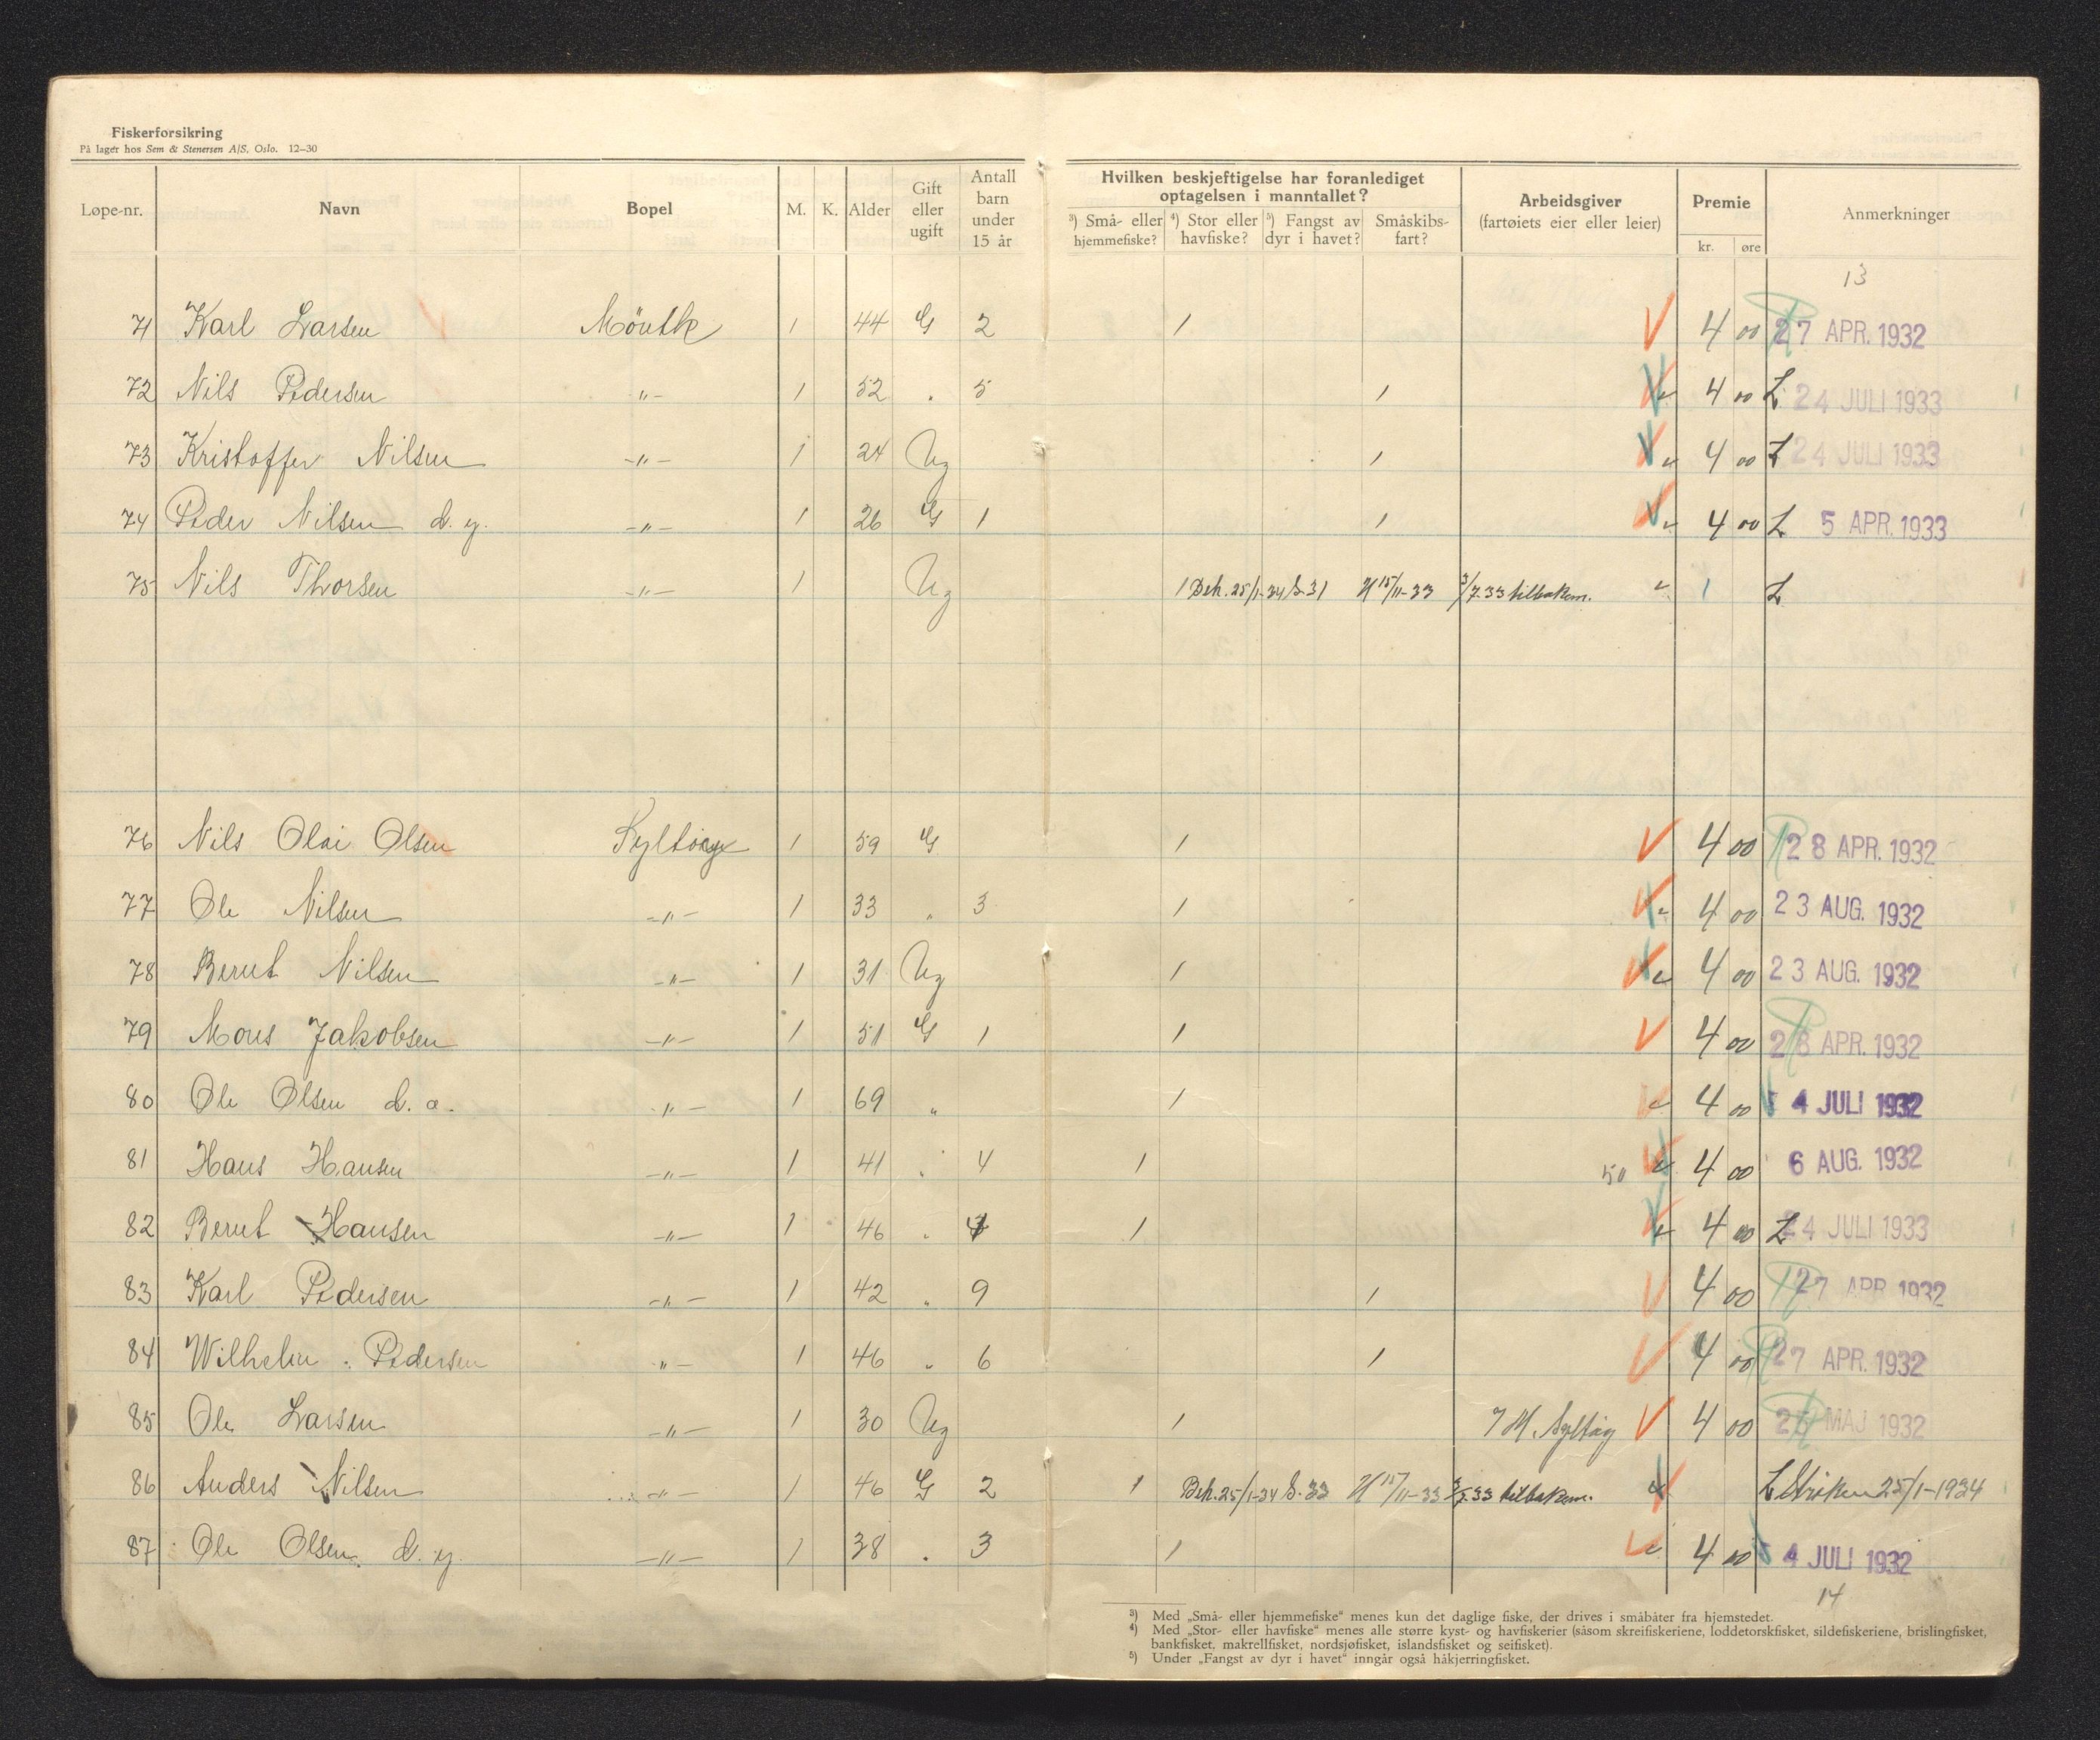 Fiskerforsikring
På lager hos Sem & Stenersen A/S, Oslo. 12–30
Løpe-nr. Navn Bopel M. K. Alder Gift eller ugift Antall barn under 15 år Hvilken beskjeftigelse har foranlediget optagelsen i manntallet? ³) Små- eller hjemmefiske? ⁴) Stor eller havfiske? ⁵) Fangst av dyr i havet? Småskibsfart? Arbeidsgiver (fartøiets eier eller leier) Premie kr. øre Anmerkninger
13
71 Karl Larsen 1 44 G 2 1 4 00 27 APR. 1932
72 Nils Pedersen -"- 1 52 . 5 1 4 00 L 24 JULI 1933
73 Kristoffer Nilsen -"- 1 24 Ug 1 4 00 L 24 JULI 1933
74 Peder Nilsen d. y. -"- 1 26 G 1 1 4 00 L 5 APR. 1933
75 Nils Thorsen -"- 1 Ug 1 Beh. 25/1-34 S. 31 H 15/11-33 3/7.33 tilbakem. 1 L
76 Nils Olai Olsen Syltöy 1 59 G 1 4 00 28 APR. 1932
77 Ole Nilsen -"- 1 33 " 3 1 4 00 23 AUG. 1932
78 Bernt Nilsen -"- 1 31 Ug 1 4 00 23 AUG. 1932
79 Mons Jakobsen -"- 1 51 G 1 1 4 00 28 APR. 1932
80 Ole Olsen d. a. -"- 1 69 " 1 4 00 4 JULI 1932
81 Hans Hansen -"- 1 41 " 4 1 50 4 00 6 AUG. 1932
82 Bernt Hansen -"- 1 46 " 1 4 00 L 24 JULI 1933
83 Karl Pedersen -"- 1 42 " 9 1 4 00 27 APR. 1932
84 Wilhelm Pedersen -"- 1 46 " 6 1 4 00 27 APR. 1932
85 Ole Larsen -"- 1 30 Ug 1 4 00 MAJ 1932
86 Anders Nilsen -"- 1 46 G 2 1 Beh. 25/1-34 S. 33 H 15/11-33 3/7.33 tilbakem. L Strøken 25/1-1934
87 Ole Olsen d. y. -"- 1 38 " 3 1 4 00 4 JULI 1932
14
³) Med „Små- eller hjemmefiske“ menes kun det daglige fiske, der drives i småbåter fra hjemstedet.
⁴) Med „Stor- eller havfiske“ menes alle større kyst- og havfiskerier (såsom skreifiskeriene, loddetorskfisket, sildefiskeriene, brislingfisket,
bankfisket, makrellfisket, nordsjøfisket, islandsfisket og seifisket).
⁵) Under „Fangst av dyr i havet“ inngår også håkjerringfisket.